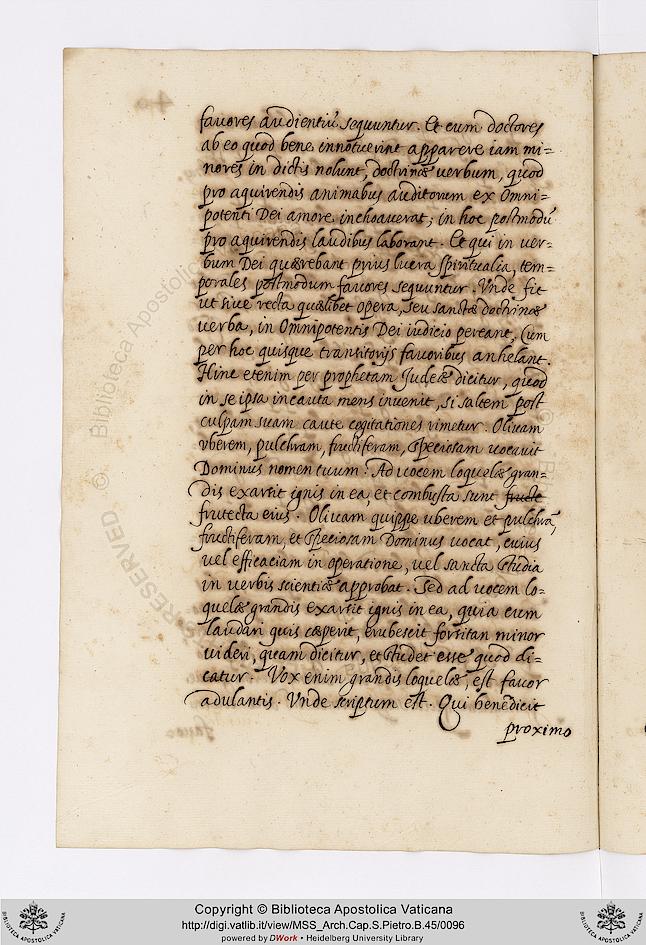 fauores audientiū sequuntur. Et cum doctores
ab eo quod bene innotuerint apparere iam mi=
nores in dictis nolunt, doctrinæ uerbum, quod
pro aquirendis animabus auditorum ex Omni=
potenti Dei amore inchoauerat; in hoc postmodū
pro aquirendis laudibus laborant. Et qui in uer=
bum Dei quærebant prius lucra spiritualia, tem=
porales postmodum fauores sequuntur. Vnde fit
ut siue recta quælibet opera, seu sanctæ doctrinæ
uerba, in Omnipotentis Dei iudicio pereant, Cum
per hoc quisque transitorijs fauoribus anhelant.
Hinc etenim per prophetam Judeæ dicitur, quod
in se ipsa incauta mens inuenit, si saltem post
culpam suam caute cogitationes rimetur. Oliuam
vberem, pulchram, fructiferam, speciosam uocauit
Dominus nomen tuum? Ad uocem loquelæ gran=
dis exarsit ignis in ea, et combusta sunt fructe
frutecta eius. Oliuam quippe vberem et pulchrā,
fructiferam, et speciosam Dominus uocat, cuius
uel efficaciam in operatione, uel sancta studia
in uerbis scientiæ approbat. Sed ad uocem lo=
quelæ grandis exarsit ignis in ea, quia cum
laudari quis cæperit, erubescit forsitan minor
uideri, quam dicitur, et studet esse quod di=
catur. Vox enim grandis loquelæ, est fauor
adulantis. Vnde scriptum est. Qui benedicit
proximo
Copyright © Biblioteca Apostolica Vaticana
http://digi.vatlib.it/view/MSS_Arch.Cap.S.Pietro.B.45/0096
powered by DWork • Heidelberg University Library